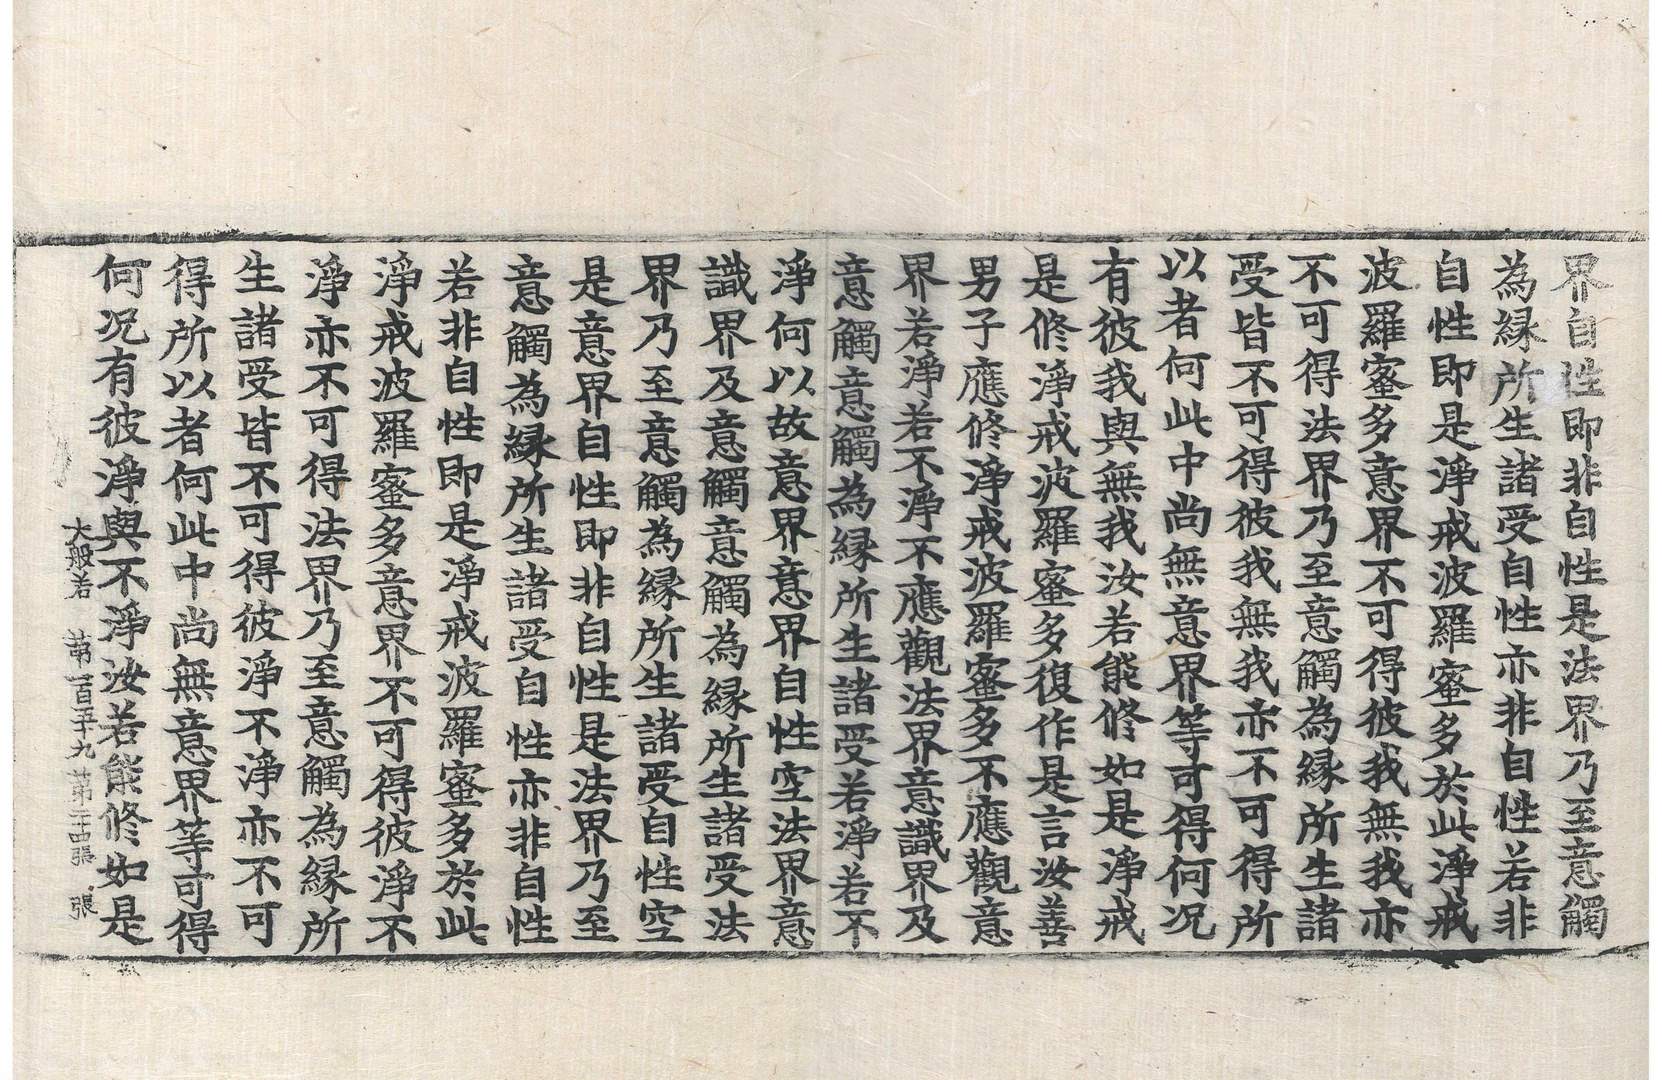 界自性即非自性是法界乃至意觸
為縁所生諸受自性亦非自性若非
自性即是淨戒波羅蜜多於此淨戒
波羅蜜多意界不可得彼我無我亦
不可得法界乃至意觸為縁所生諸
受皆不可得彼我無我亦不可得所
以者何此中尚無意界等可得何况
有彼我與無我汝若能修如是淨戒
是修淨戒波羅蜜多復作是言汝善
男子應修淨戒波羅蜜多不應觀意
界若淨若不淨不應觀法界意識界及
意觸意觸為縁所生諸受若淨若不
淨何以故意界意界自性空法界意
識界及意觸意觸為縁所生諸受法
界乃至意觸為縁所生諸受自性空
是意界自性即非自性是法界乃至
意觸為縁所生諸受自性亦非自性
若非自性即是淨戒波羅蜜多於此
淨戒波羅蜜多意界不可得彼淨不
淨亦不可得法界乃至意觸為縁所
生諸受皆不可得彼淨不淨亦不可
得所以者何此中尚無意界等可得
何况有彼淨與不淨汝若能修如是
大般若 苐一百五十九 苐二十四張 張